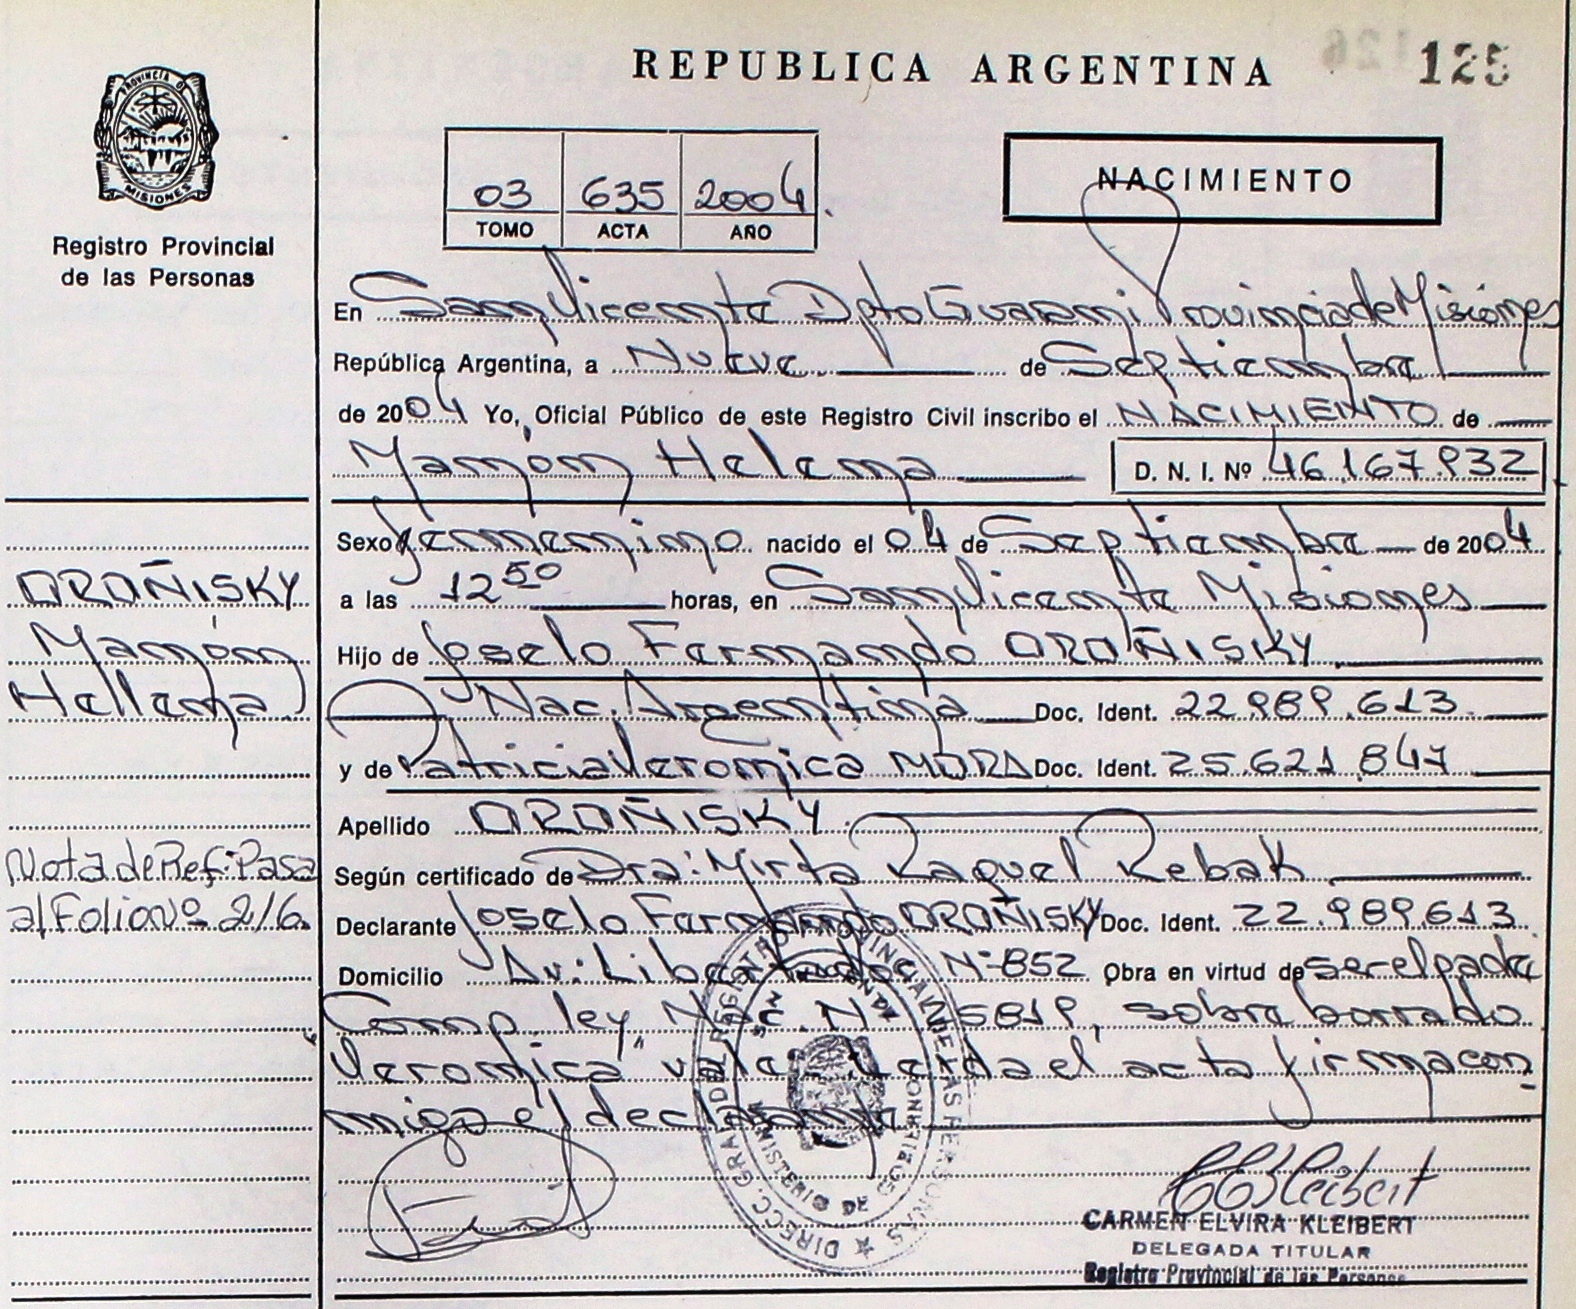 REPUBLICA ARGENTINA
125
PROVINCIA D
MISIONES
Registro Provincial
de las Personas
03 635 2004.
TOMO ACTA AÑO
NACIMIENTO
En San Vicente Dpto Guarani Provincia de Misiones
República Argentina, a Nueve de Septiembre
de 2004 Yo, Oficial Público de este Registro Civil inscribo el NACIMIENTO de
Helena D. N. I. Nº 46.167.932
Sexo femenino nacido el 04 de Septiembre de 2004
a las 12 50 horas, en San Vicente Misiones
Hijo de Joselo Fernando OROÑISKY
Nac. Argentina Doc. Ident. 22.989.613
y de Patricia Veronica MORA Doc. Ident. 25.621.847
Apellido OROÑISKY
Según certificado de Dra: Mirta Raquel Rebak
Declarante Joselo Fernando OROÑISKY Doc. Ident. 22.989.613
Domicilio Av: Libertador Nº 852 Obra en virtud de ser el padre
Comp. ley Nac. Nº 25819, sobre borrado
Veronica" vale. Leida el acta firma con
migo el declarante
OROÑISKY
Hellena
Nota de Ref: Pasa
al Folio Nº 216.
DIRECC. GRAL. DEL REGISTRO PROVINCIAL DE LAS PERSONAS
MINISTERIO DE GOBIERNO
CARMEN ELVIRA KLEIBERT
DELEGADA TITULAR
Registro Provincial de las Personas